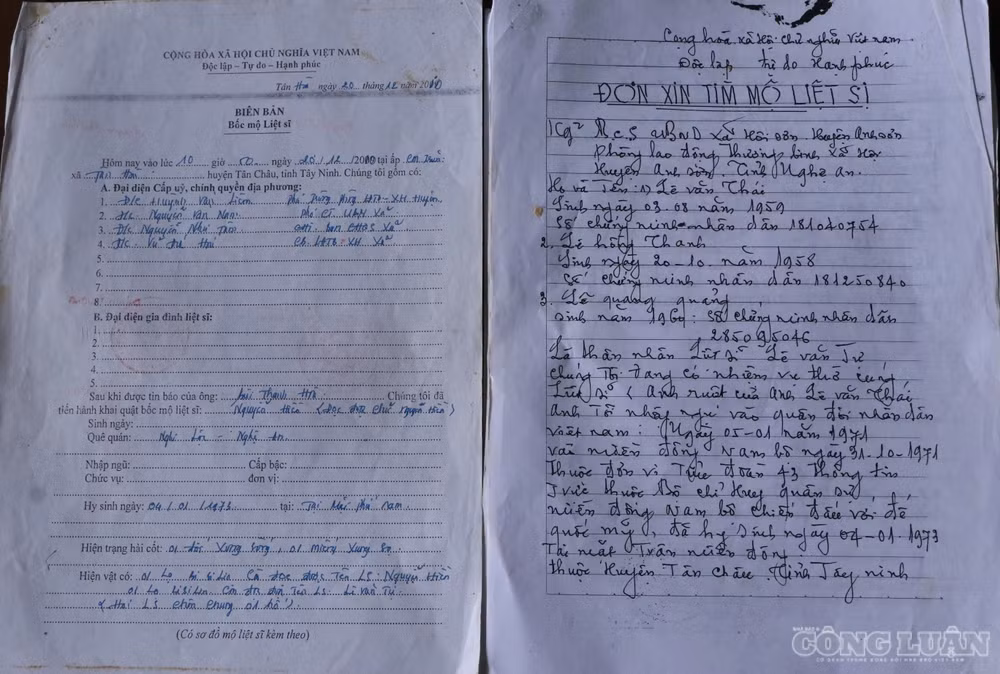 CỘNG HÒA XÃ HỘI CHỦ NGHĨA VIỆT NAM
Độc lập – Tự do – Hạnh phúc
Tân Hòa ngày 20 tháng 12 năm 2000
BIÊN BẢN
Bốc mộ Liệt sĩ
Hôm nay vào lúc 10 giờ 50 ngày 20/12/2000 tại ấp
xã Tân Hòa huyện Tân Châu, tỉnh Tây Ninh. Chúng tôi gồm có:
A. Đại diện Cấp uỷ, chính quyền địa phương:
1. Đ/c Huỳnh Văn Phó Phòng LĐTB-XH Huyện
2. Đ/c Nguyễn Văn Nam Phó CT UBND Xã
3. Đ/c Nguyễn Như Xã
4. Đ/c Vũ XH Xã
5.
6.
7.
8.
B. Đại diện gia đình liệt sĩ:
1.
2.
3.
4.
5.
Sau khi được tin báo của ông: Thanh Chúng tôi đã
tiến hành khai quật bốc mộ liệt sĩ: Nguyễn Hiền (đọc được chữ Nguyễn Hiền)
Sinh ngày:
Quê quán: Nghi Lộc - Nghệ An
Nhập ngũ: Cấp bậc:
Chức vụ: đơn vị:
Hy sinh ngày: 04/01/1973 tại: Tại
Hiện trạng hài cốt: 01 Xương, 01 Xương
Hiện vật có: 01 Lọ Còn đọc được Tên LS: Nguyễn Hiền
01 Lọ Còn đọc Tên LS: Lê Văn Tứ
(Hai LS chôn chung 01 hố)
(Có sơ đồ mộ liệt sĩ kèm theo)
Cộng hòa xã hội chủ nghĩa Việt nam
Độc lập tự do Hạnh phúc
ĐƠN XIN TÌM MỘ LIỆT SĨ
Kg² UBND xã Hội sơn Huyện Anh sơn
Phòng lao động Thương binh Xã Hội
Huyện Anh sơn. Tỉnh Nghệ An.
Họ và Tên: 1) Lê văn Thái
Sinh ngày 03-08 năm 1959
Số chứng minh nhân dân 181040754
2. Lê hồng Thanh
Sinh ngày 20-10. năm 1958
Số chứng minh nhân dân 181250840
3. Lê quang quảng
sinh năm 1960: số chứng minh nhân dân
285095046
Là thân nhân Liệt sĩ Lê văn Tứ
chúng Tôi đang có nhiệm vụ thờ cúng
Liệt sĩ (Anh ruột của anh Lê văn Thái
anh Tứ nhập ngũ vào quân đội nhân dân
việt nam: Ngày 05-01 năm 1971
vào miền đông Nam bộ ngày 31-10-1971
Thuộc đơn vị Tiểu đoàn 43 thông tin
Trực thuộc Bộ chỉ Huy quân sự
miền đông Nam bộ chiến đấu với đế
quốc mỹ, đã hy sinh ngày 04-01-1973
Tại mặt Trận miền đông
thuộc Huyện Tân châu Tỉnh Tây ninh
CÔNG LUẬN